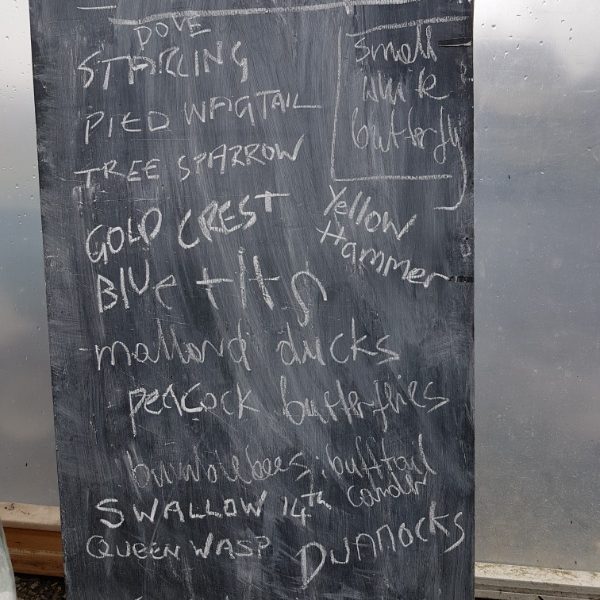 DOVE
STARLING
PIED WAGTAIL
TREE SPARROW
small
white
butterfly
GOLD CREST
Yellow
Hammer
Blue tits
-mallard ducks
-PEACOCK butterflies
bumblebees: bufftail
carder
SWALLOW 14th
QUEEN WASP
DUNNOCKS